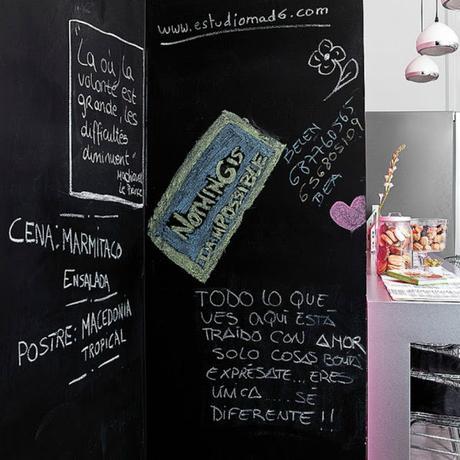 "La où, la
volonté est
grande, les
difficultés
diminuent"
Machiavel
le prince
CENA: MARMITACO
ENSALADA
POSTRE: MACEDONIA
TROPICAL
www.estudiomad6.com
NOTHING IS
IMPOSSIBLE
BELEN
687760765
656805109
BEA
TODO LO QUE
VES AQUÍ ESTÁ
TRAIDO CON AMOR
SOLO COSAS
EXPRÉSATE... ERES
ÚNICA .... SÉ
DIFERENTE!!